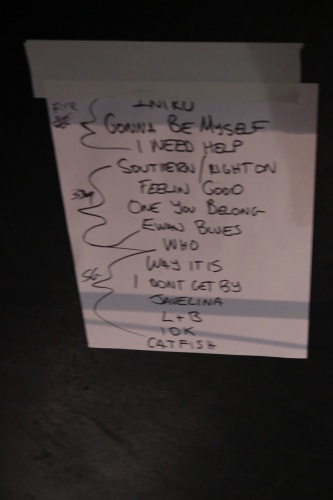 INIKU
GONNA BE MYSELF
I NEED HELP
SOUTHERN / RIGHT ON
FEELIN GOOD
ONE YOU BELONG
EWAN BLUES
WHO
WAY IT IS
I DONT GET BY
JAVELINA
L+B
10K
CATFISH
FIRE
SG